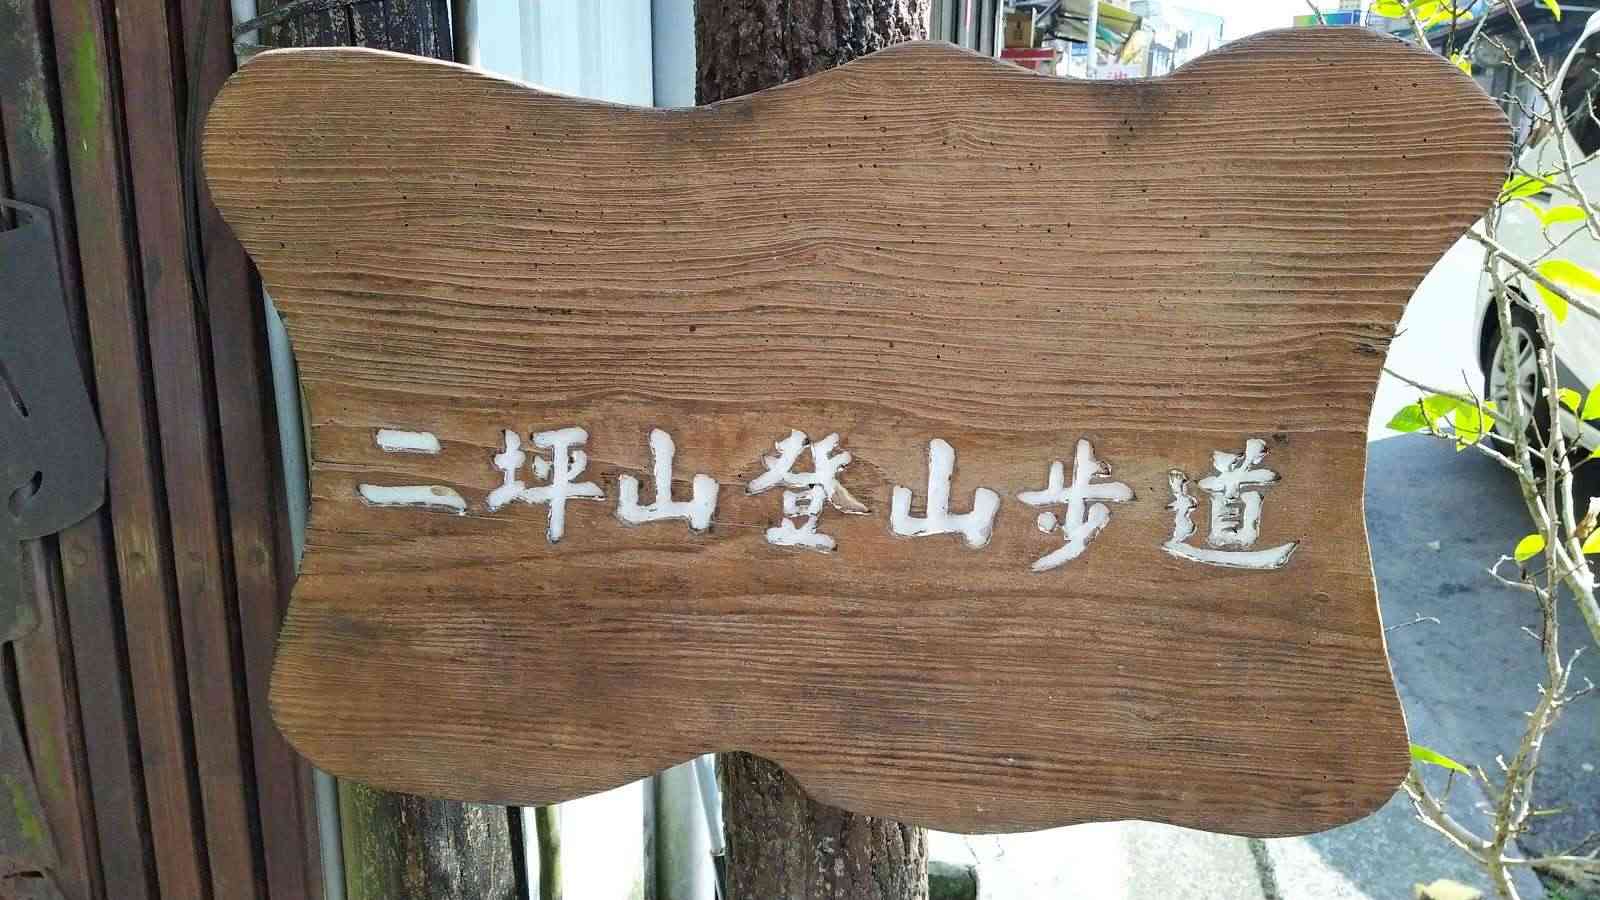 二坪山登山步道